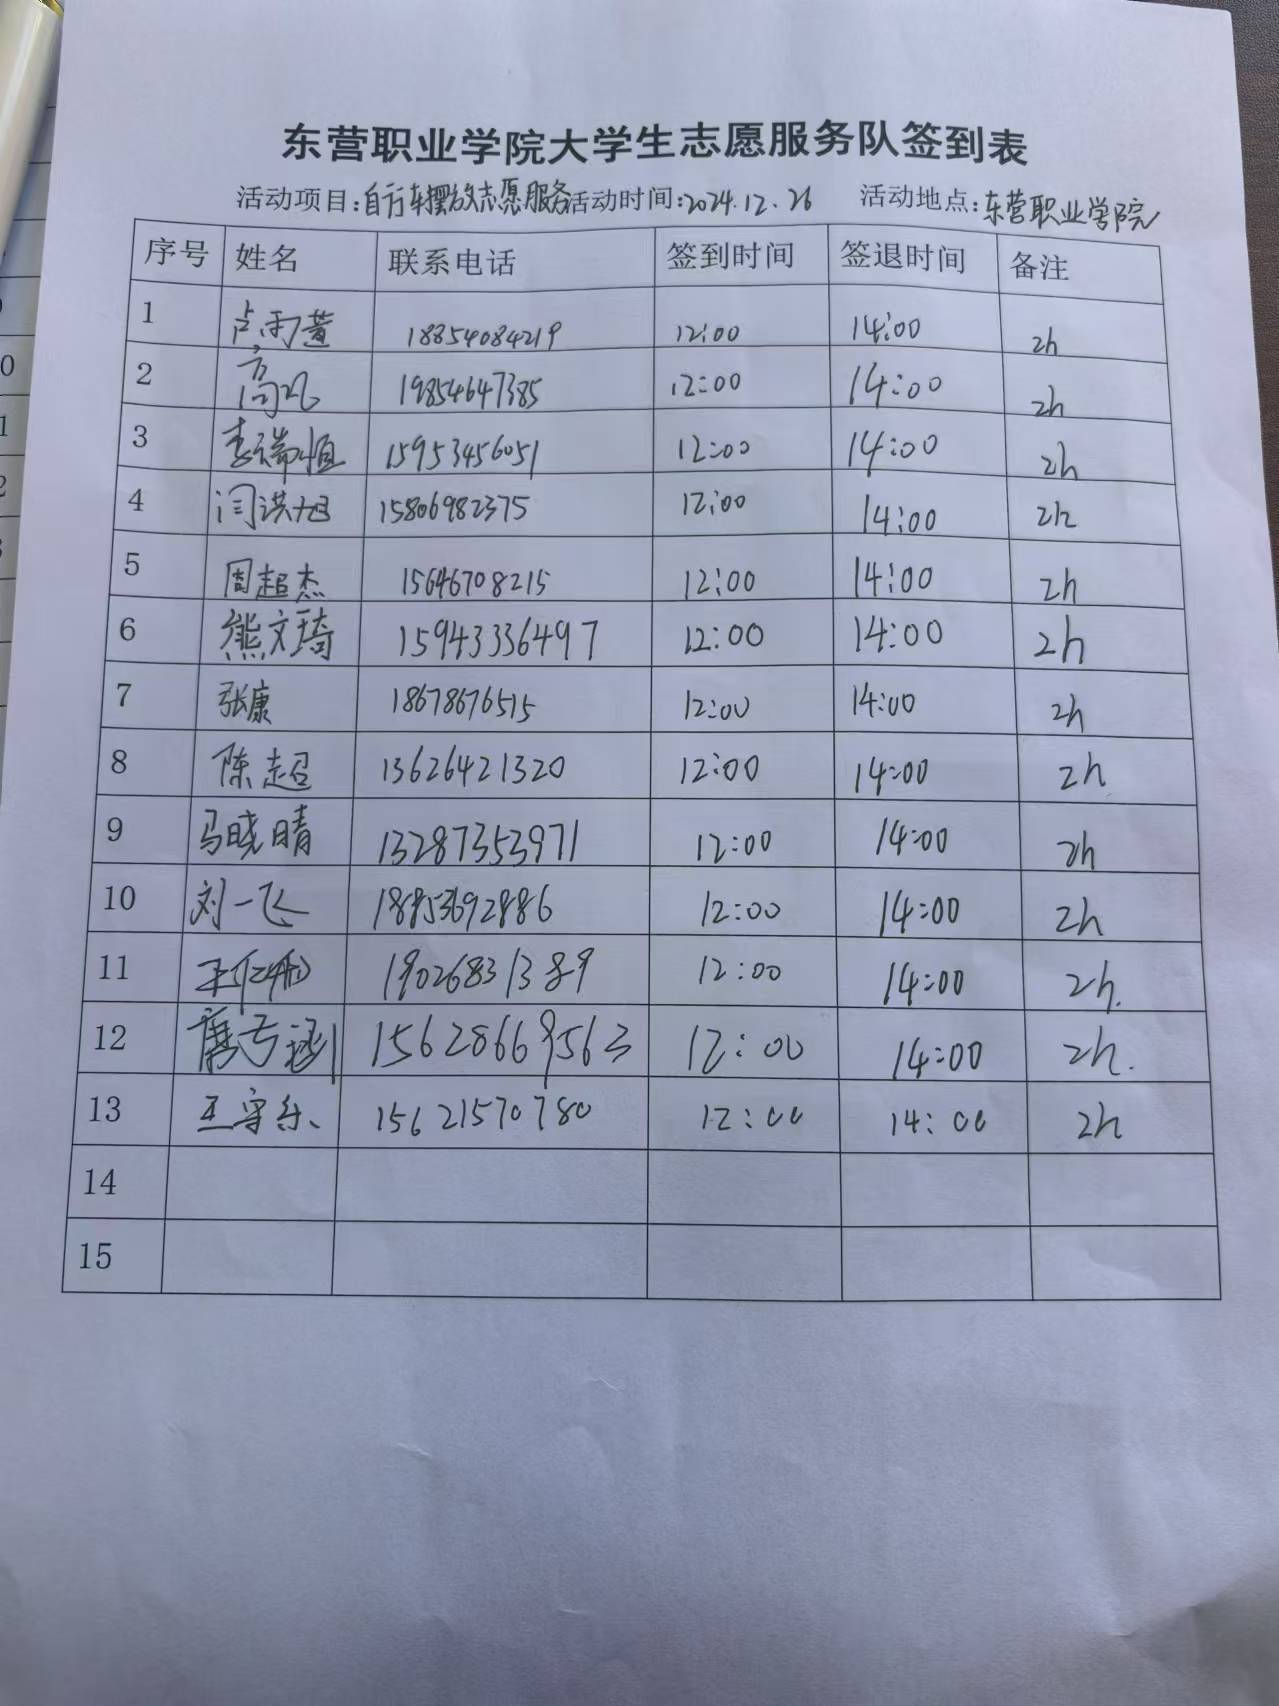 东营职业学院大学生志愿服务队签到表
活动项目:自行车摆放志愿服务 活动时间:2024.12.26 活动地点:东营职业学院
序号 姓名 联系电话 签到时间 签退时间 备注
1 卢雨萱 18854084219 12:00 14:00 2h
2 高 19854647385 12:00 14:00 2h
3 李瑞恒 15953456051 12:00 14:00 2h
4 闫洪旭 15806982375 12:00 14:00 2h
5 周超杰 15646708215 12:00 14:00 2h
6 熊文琦 15943336497 12:00 14:00 2h
7 张康 18678676515 12:00 14:00 2h
8 陈超 13626421320 12:00 14:00 2h
9 马晓晴 13287353971 12:00 14:00 2h
10 刘一飞 18853692886 12:00 14:00 2h
11 19026831389 12:00 14:00 2h.
12 15628669563 12:00 14:00 2h.
13 王守乐 15621570780 12:00 14:00 2h
14
15